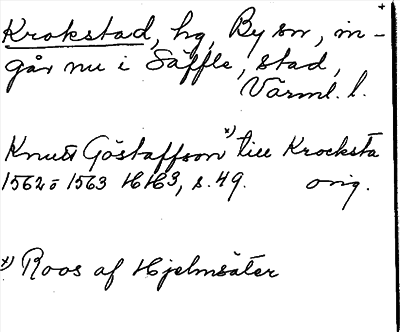 Krokstad, hg, By sn, in-
går nu i Säffle, stad,
Värml. l.
Knutt Göstaffson x) till Krocksta
1562 o 1563 HH3, s. 49. orig.
x) Roos af Hjelmsäter